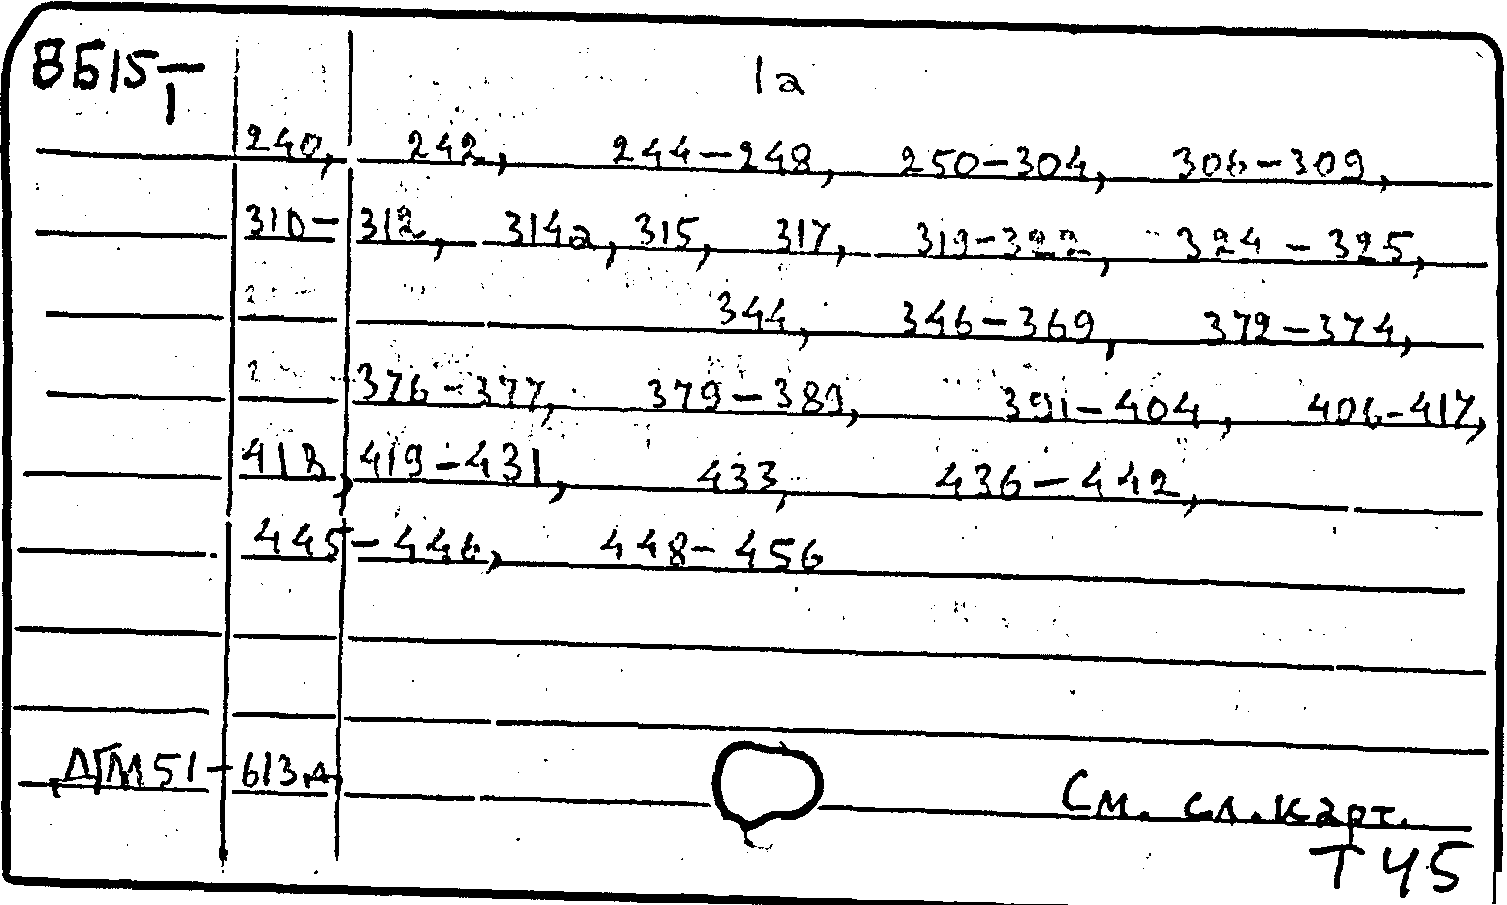 ВБ15 Т 1а
1
240, 242, 244-248, 250-304, 306-309,
310-312, 314а, 315, 317, 319-322, 324-325,
344, 346-369, 372-374,
376-377, 379-389, 391-404, 406-417,
418, 419-431, 433, 436-442,
445-446, 448-456
ДГМ51-613м
См. сл. карт.
Т 45